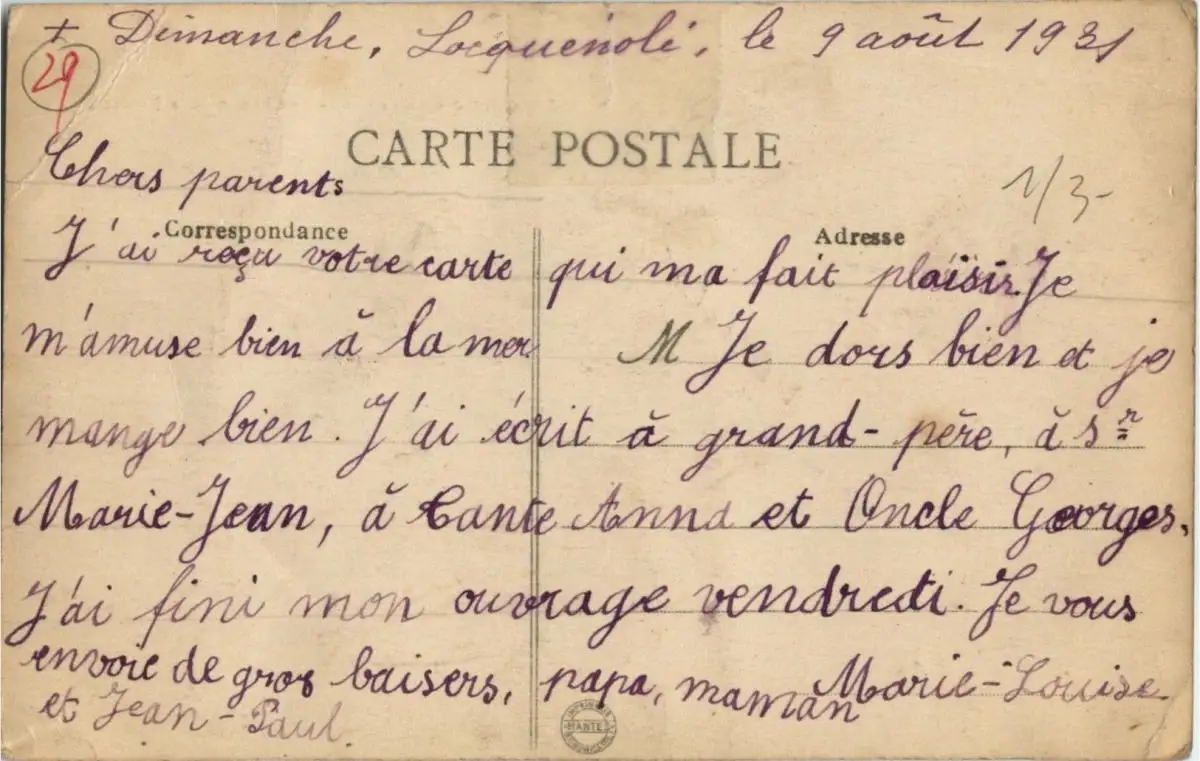 + Dimanche, Locquénolé, le 9 août 1931
29
CARTE POSTALE
Chers parents
1/3-
Correspondance
Adresse
J'ai reçu votre carte qui ma fait plaisir. Je
m'amuse bien à la mer M Je dors bien et je
mange bien. J'ai écrit à grand-père, à Sr
Marie-Jean, à tante Anna et Oncle Georges.
J'ai fini mon ouvrage vendredi. Je vous
envoie de gros baisers, papa, maman Marie-Louise
et Jean-Paul.
NANTES